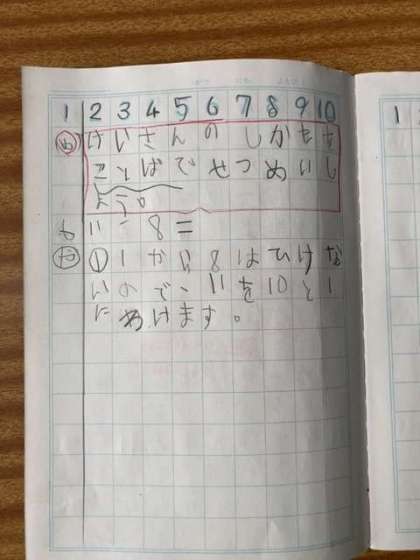 1 2 3 4 5 6 7 8 9 10
め けいさんのしかたを
ことばでせつめいし
よう。
も 11-8=
① 1から8はひけな
いので、11を10と1
にわけます。
1